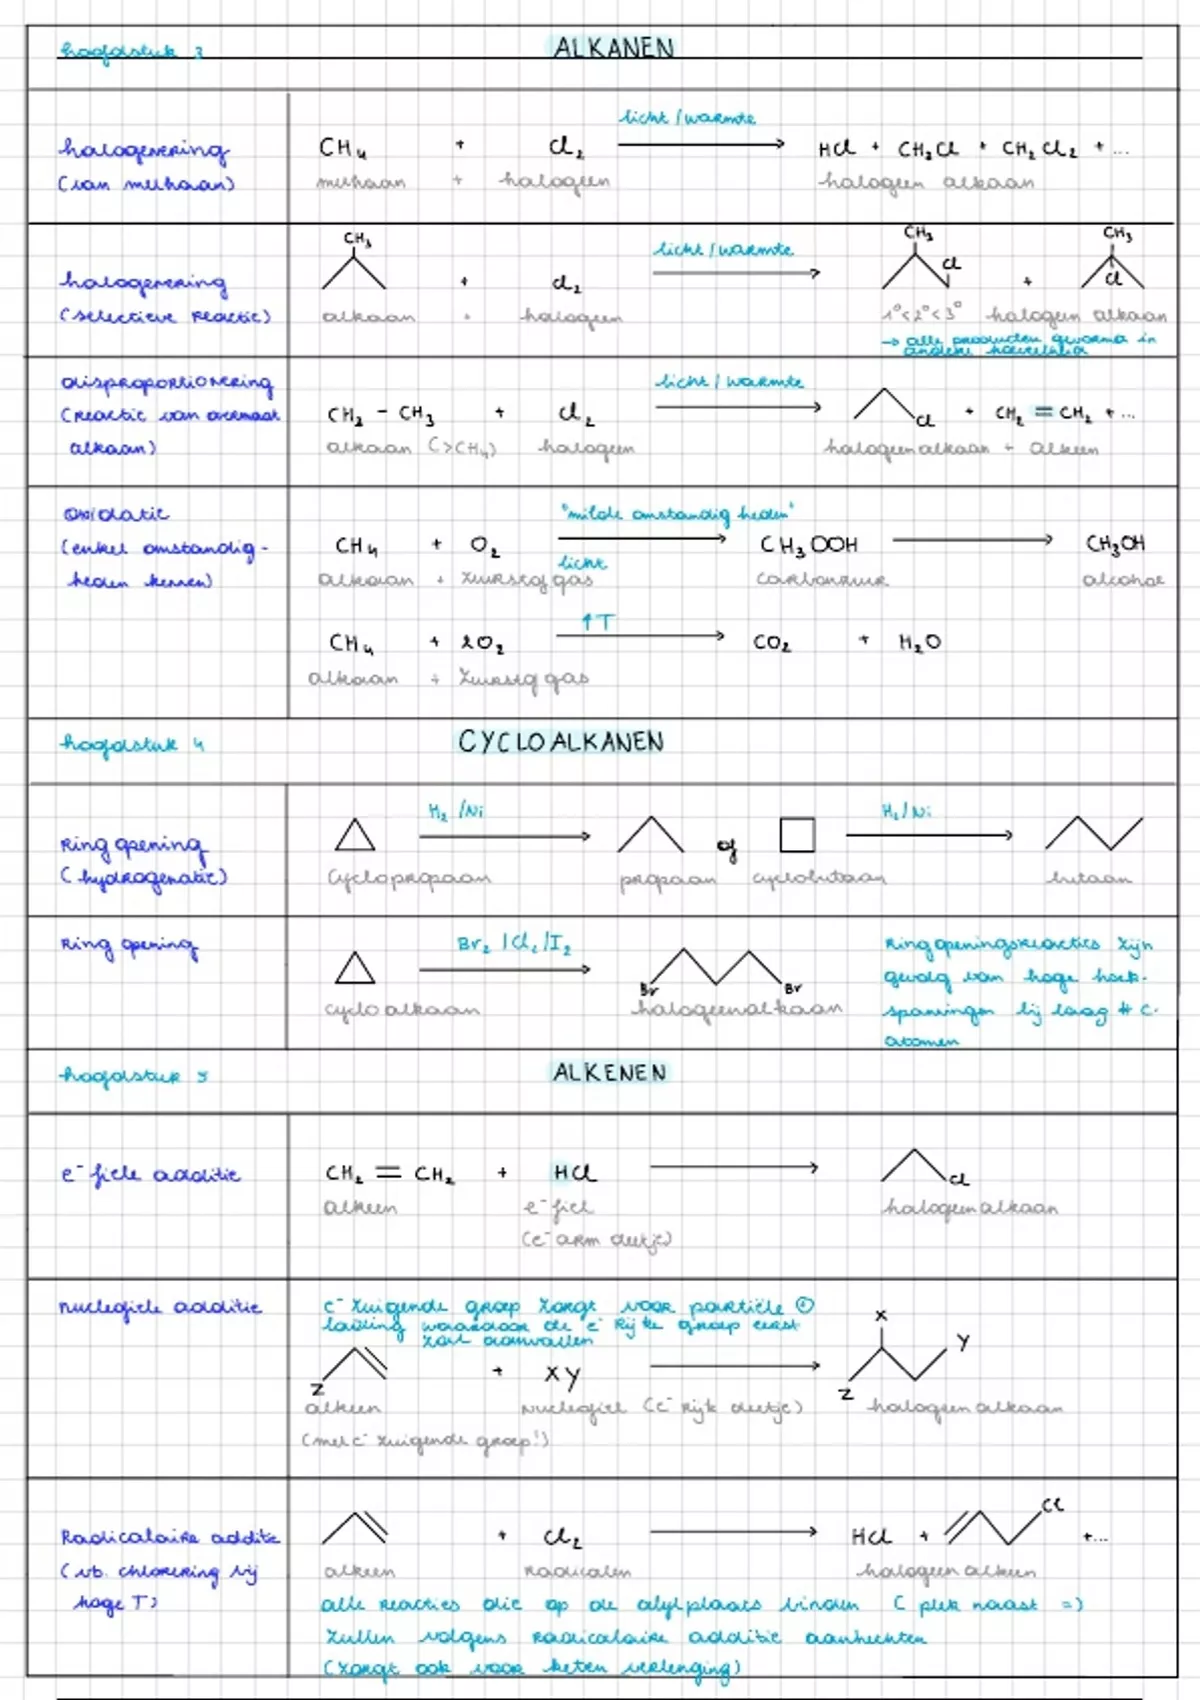 hoofdstuk 3
ALKANEN
halogenering
(van methaan)
licht / warmte
CH₄ + Cl₂ HCl + CH₃Cl + CH₂Cl₂ + ...
methaan + halogeen halogeen alkaan
halogenering
(selectieve reactie)
CH₃ + Cl₂
licht / warmte
CH₃ Cl + CH₃ Cl
alkaan + halogeen 1° < 2° < 3° halogeen alkaan
→ alle producten gevormd in
andere hoeveelheid
disproportionering
(reactie van overmaat
alkaan)
licht / warmte
CH₃ - CH₃ + Cl₂ Cl + CH₂ = CH₂ + ...
alkaan (>CH₄) halogeen halogeenalkaan + alkeen
oxidatie
(enkel omstandig-
heden kennen)
"milde omstandig heden"
CH₄ + O₂ CH₃OOH CH₃OH
licht
alkaan + zuurstof gas carbonzuur alcohol
↑T
CH₄ + 2O₂ CO₂ + H₂O
alkaan + zuurstof gas
hoofdstuk 4
CYCLOALKANEN
ring opening
(hydrogenatie)
H₂ /Ni H₂/Ni
of
cyclopropaan propaan cyclobutaan butaan
ring opening
Br₂ /Cl₂ /I₂
Br Br
cyclo alkaan halogeenalkaan
Ringopeningsreacties zijn
gevolg van hoge hoek-
spanningen bij laag # C-
atomen
hoofdstuk 5
ALKENEN
e⁻ fiele additie
CH₂ = CH₂ + HCl Cl
alkeen e⁻ fiel halogeen alkaan
(e⁻ arm deeltje)
nucleofiele additie
e⁻ zuigende groep zorgt voor partiële ⊕
lading waardoor de e⁻ rijke groep eerst
zal aanvallen
Z + XY X Y Z
alkeen nucleofiel (e⁻ rijk deeltje) halogeen alkaan
(met e⁻ zuigende groep!)
Radicalaire additie
(vb. chlorering bij
hoge T)
+ Cl₂ HCl + Cl +...
alkeen radicalen halogeen alkeen
alle reacties die op de alylplaats binden ( plek naast =)
zullen volgens radicalaire additie aanhechten
(zorgt ook voor keten verlenging)